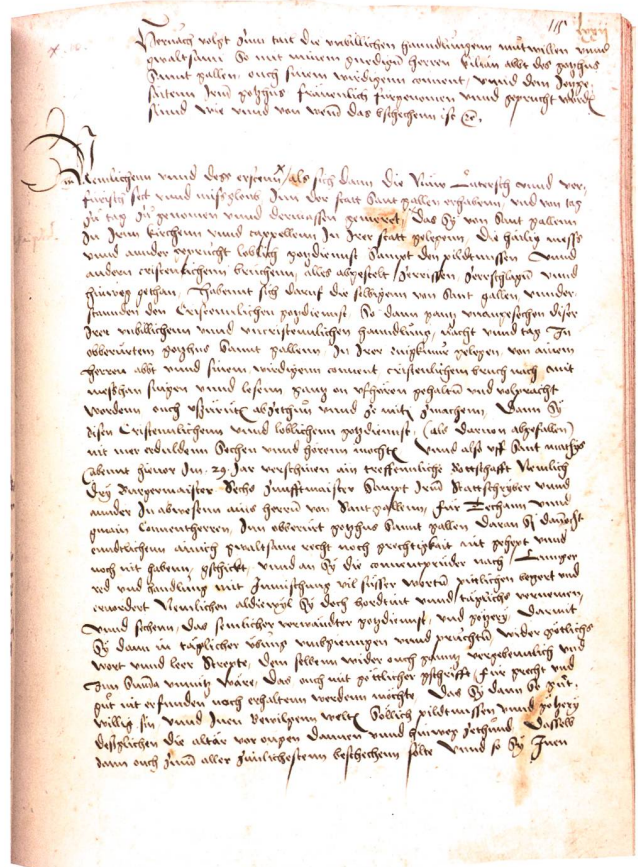 Hernach volgt zum tail die unbillichen handlungen mutwillen unnd
gwaltsam So mit minem gnedigen herren Kilian abbt des gotzhus
Sannt gallen, ouch sinem wirdigenn convent, unnd dem
gotzhus frävenlich fürgenomen unnd gepracht
sind wie unnd von wem das beschechenn ist
Nemlichenn unnd des erstenn, als sich dann die Nüw Lutersch unnd ver
sect unnd Inn der statt Sant gallen erhabenn, und von tag
zu tag zugenomen unnd dermassen gemeret, das Sy von Sant gallenn
In Iren kirchenn unnd cappellenn In Irer statt gelegenn, die hailig mess
unnd annder loblich gotzdienst Sampt den pildtnussen unnd
andern cristenlichenn brüchenn, alles abgestelt, zerrissen, zerschlagen unnd
hinweg gethan, Habennt sich daruf die selbigenn von Sant gallen, unnder
standen den Cristennlichen gotzdiennst, So dann gantz unangesechen diser
Irer unbillichenn unnd uncristennlichen hanndlung, nacht unnd tag In
gotzhus Sannt gallenn, In Irer gelegen, von ainem
herren abbt unnd sinem wirdigenn convent cristenlichem bruch nach, mit
messhan singen unnd lesenn gantz on ufhören gehalten und volpracht
wordenn ouch abzethun unnd ze nüt zmachenn, Dann Sy
disen Cristennlichenn unnd loblichenn gotzdiennst, (als darvon abgefallen)
nit mer erdulden Sechen unnd hörenn mochten Unnd also uff Sant
hievor Im .29. Jar verschinen ain treffennliche Bottschafft Nemlich
Dry Burgermaister Sechs Zunfftmaister Sampt Irem Stattschryber unnd
annder In abwesenn ains herren von Sant gallenn, für Techann unnd
gmain Conventherren, Inn gotzhus Sannt gallen daran Sy dannocht
enndtlichenn ainich gwaltsame recht noch grechtigkait nit gehept unnd
noch nit habenn, geschickt, unnd an Sy die conventprüder nach Lannger
red und handlung mit Inmischung vil süsser worten pittlichen begert und
ervordert Nemlichen Sy doch hordtint unnd täglichs vernemen
unnd sechenn, das sennlicher vermainter gotzdiennst, und götzery Darmit
Sy dann in täglicher übung umbgiengen unnd wider götlichs
wort unnd leer Strepte, dem selbenn wider ouch gantz vergebennlich und
Inn Summa unnütz wäre, das ouch mit götlicher gschrifft für grecht und
gut nit erfunden noch erhaltenn werdenn möchte, Das Sy dann So gut
willig sin unnd Inen Bewilgenn welten Söllich pildtnussen unnd götzery
desglichen die altär vor ougen dannen unnd hinweg zethund Dasselb
dann ouch Inen aller beschechenn sölte Unnd so Sy Inen